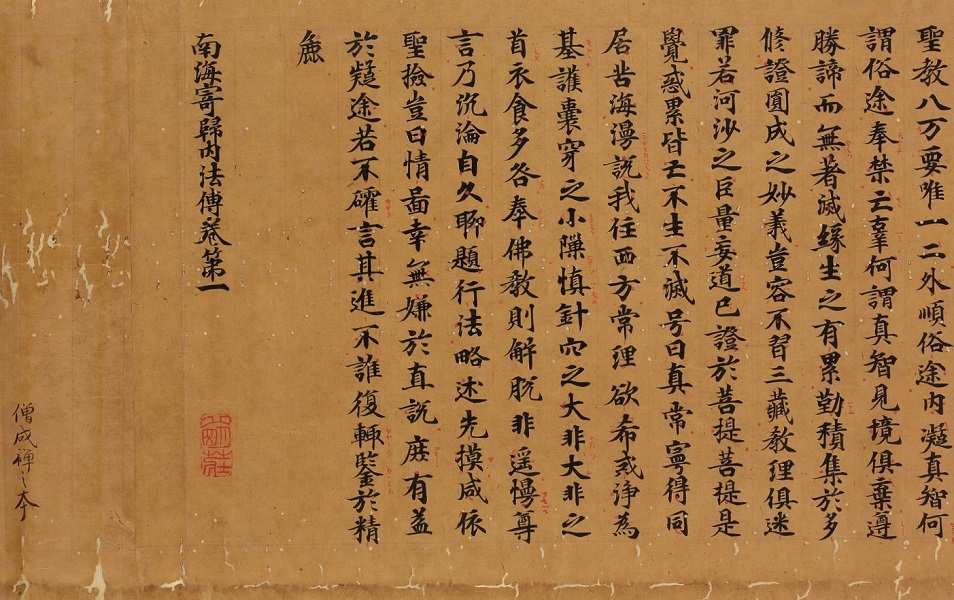 聖教八万要唯一二外順俗途内凝真智何
謂俗途奉禁亡辜何謂真智見境俱棄遵
勝諦而無著滅緣生之有累勤積集於多
修證圓成之妙義豈容不習三藏教理俱迷
罪若河沙之巨量妄道已證於菩提菩提是
覺惑累皆亡不生不滅号曰真常寧得同
居苦海漫説我住西方常理欲希戒浄為
基護囊穿之小隟慎針穴之大非大非之
首衣食多咎奉佛教則解脱非遥慢尊
言乃沉淪自久聊題行法略述先摸咸依
聖撿豈曰情啚幸無嫌於直説庶有益
於疑途若不確言其進不誰復輙鑒於精
麁
南海寄歸内法傳卷第一
僧成禅々本